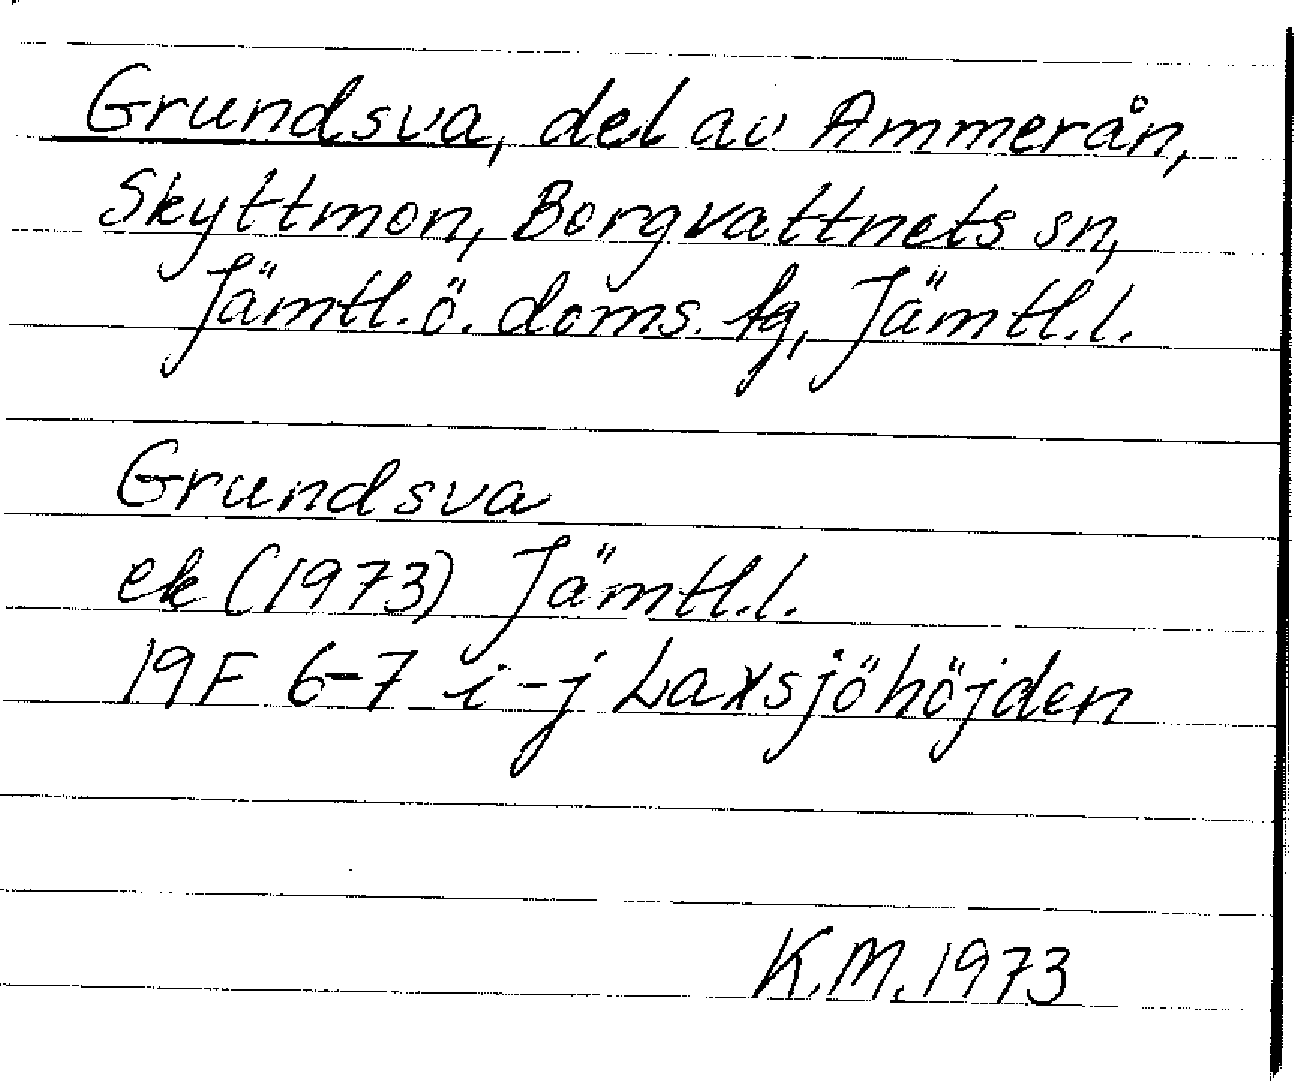 Grundsva, del av Ammerån,
Skyttmon, Borgvattnets sn,
Jämtl. ö. doms. fg, Jämtl. l.
Grundsva
ek (1973) Jämtl. l.
19F 6-7 i-j Laxsjöhöjden
K.M. 1973